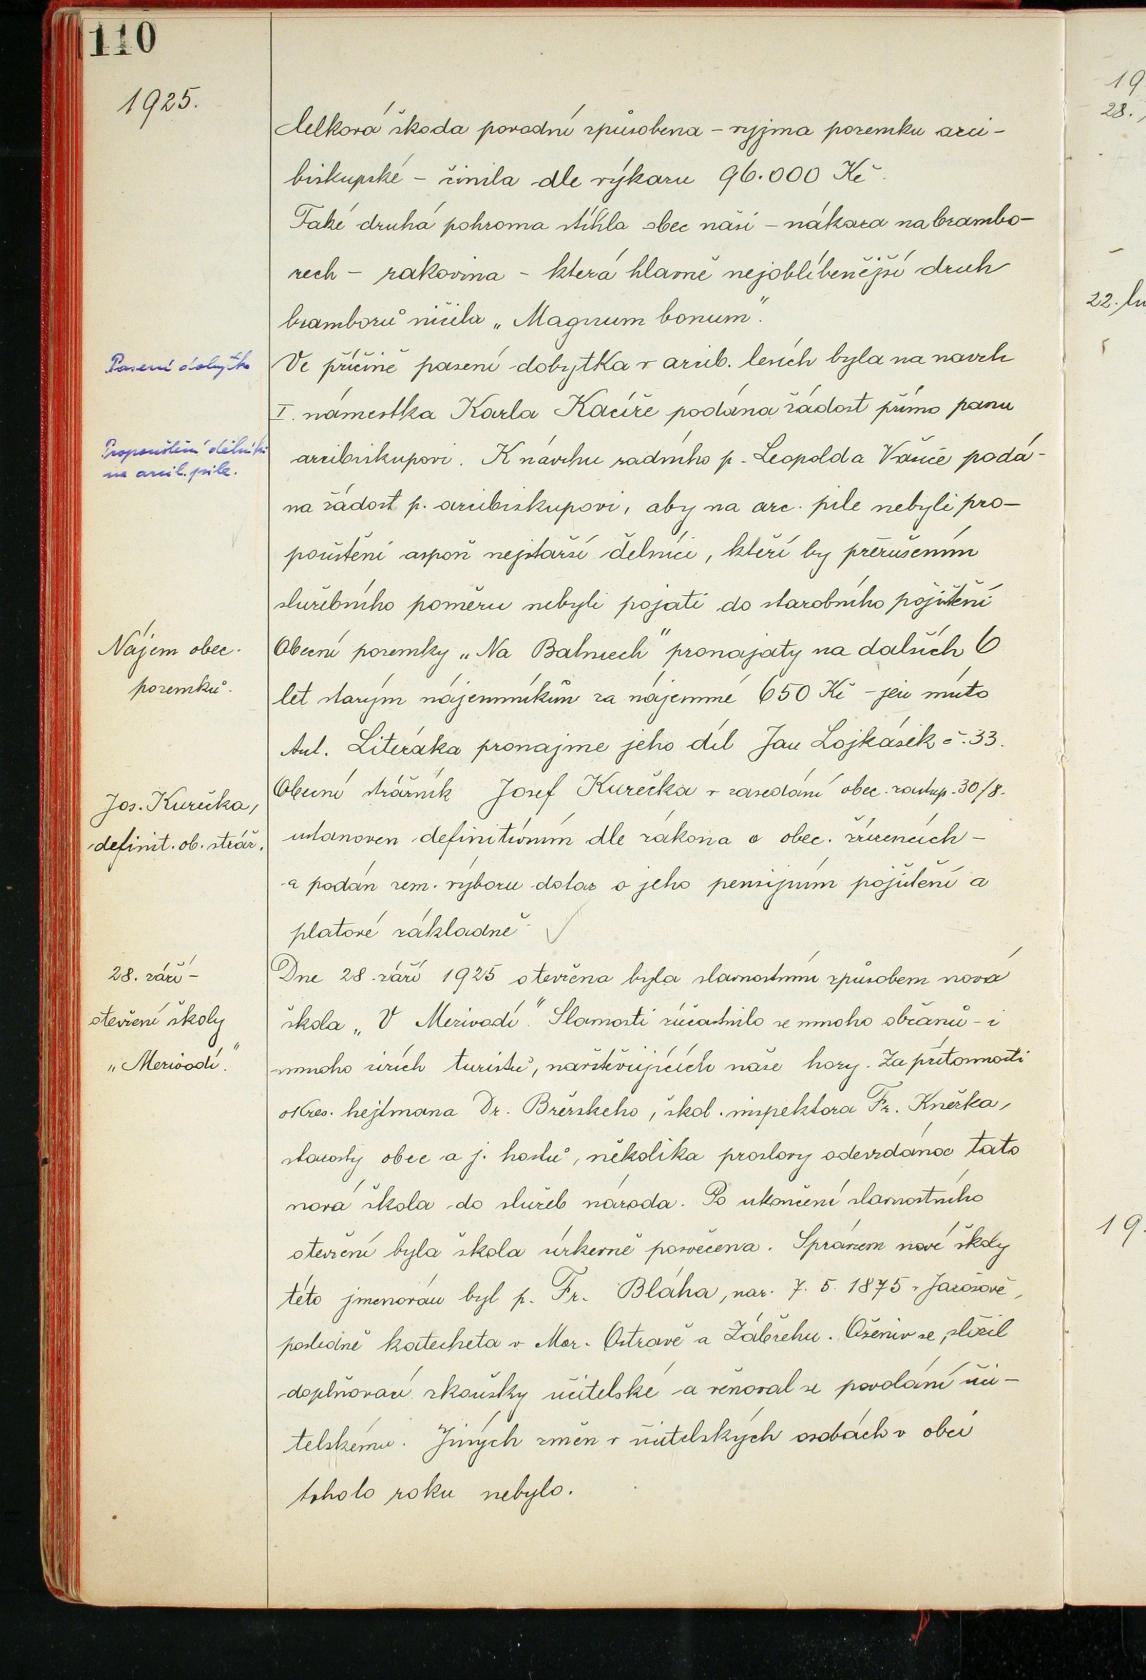 110
1925.
Celková škoda povodní způsobena – vyjma pozemku arci-
biskupské – činila dle výkazu 96.000 Kč.
Také druhá pohroma stihla obec naši – nákaza na brambo-
rech – rakovina – která hlavně nejoblíbenější druh
bramborů ničila „Magnum bonum".
Pasení dobytka
Ve příčině pasení dobytka v arcib. lesích byla na navrh
I. náměstka Karla Kacíře podána žádost přímo panu
Propouštění dělníků
na arcib. pile.
arcibiskupovi. K návrhu radního p. Leopolda Vašíč podá-
na žádost p. arcibiskupovi, aby na arc. pile nebyli pro-
pouštěni aspoň nejstarší dělníci, kteří by přerušením
služebního poměru nebyli pojati do starobního pojištění
Nájem obec.
pozemků.
Obecní pozemky „Na Bahnech" pronajaty na dalších 6
let starým nájemníkům za nájemné 650 Kč – jen místo
Ant. Literáka pronajme jeho díl Jan Lojkásek č. 33.
Jos. Kurečka,
definit. ob. stráž.
Obecní strážník Josef Kurečka v zasedání obec. zastup. 30/8.
ustanoven definitivním dle zákona o obec. zřízencích –
a podán zem. výboru dotaz o jeho pensijním pojištění a
platové základně
28. září –
otevření školy
„Merivodí."
Dne 28. září 1925 otevřena byla slavnostním způsobem nová
škola „V Merivodí." Slavnosti zúčastnilo se mnoho občanů – i
mnoho cizích turistů, navštěvujících naše hory. Za přítomnosti
okres. hejtmana Dr. Brězského, škol. inspektora Fr. Kněžka,
starosty obce a j. hostů, několika proslovy odevzdána tato
nová škola do služeb národa. Po ukončení slavnostního
otevření byla škola církevně posvěcena. Správcem nové školy
této jmenován byl p. Fr. Bláha, nar. 7. 5. 1875 v Jarošově,
posledně katecheta v Mor. Ostravě a Zábřehu. Oženiv se, složil
doplňovací zkoušky učitelské a věnoval se povolání uči-
telskému. Jiných změn v učitelských osobách v obci
tohoto roku nebylo.
19
28.
22. lu
19.